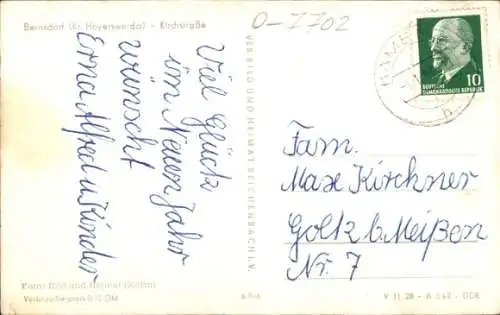 Bernsdorf (Kr. Hoyerswerda) - Kirchstraße
O-7702
Viel Glück
im Neuen Jahr
wünscht
Erna Alfred u Kinder
VEB BILD UND HEIMAT REICHENBACH I. V.
10
DEUTSCHE
DEMOKRATISCHE REPUBLIK
Fam.
Max Kirchner
Golk b. Meißen
Nr. 7
Foto: Bild und Heimat
Verbraucherpreis 0,15 DM
V 11 28 - A
DDR